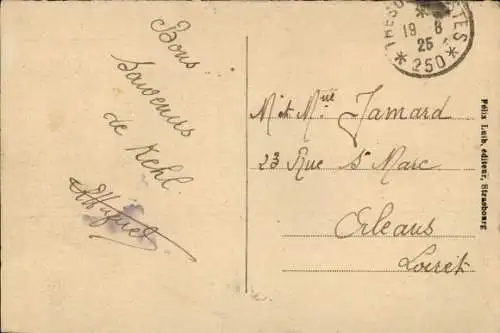 Bons
Souvenirs
de Kehl
M et Mme Jamard
23 Rue St Marc
Orleans
Loiret
TRESOR ET POSTES
19 8
25
* 250 *
Félix Luib, éditeur, Strasbourg